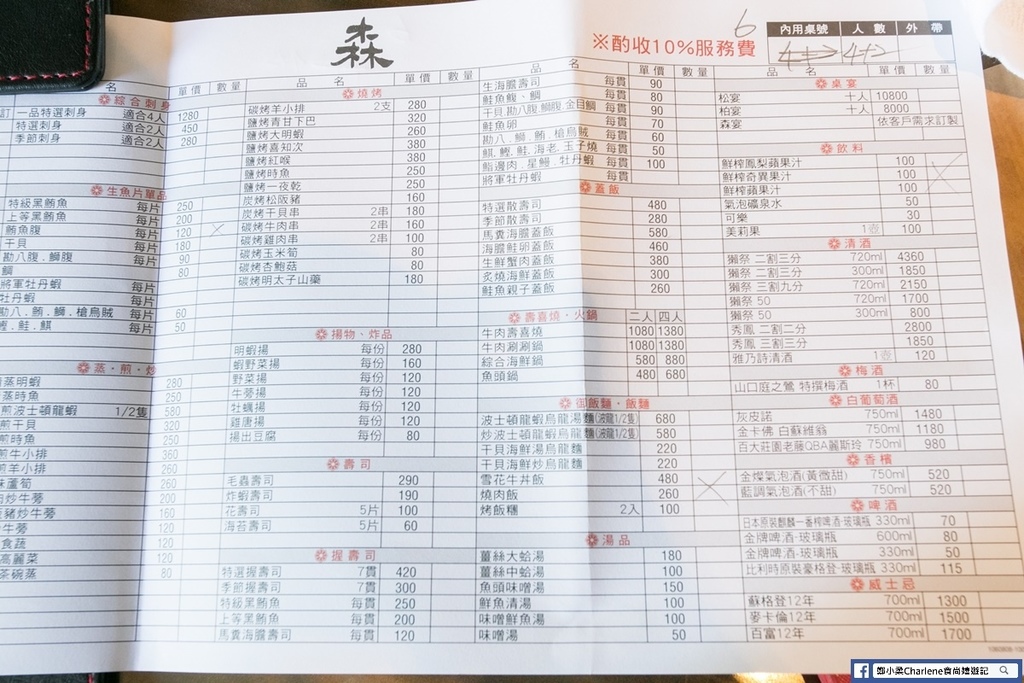 森
※酌收10%服務費
6
內用桌號 人數 外帶
名 數量
綜合刺身
一品特選刺身 適合4人 1280
特選刺身 適合2人 450
季節刺身 適合2人 280
生魚片單品
特級黑鮪魚 每片 250
上等黑鮪魚 每片 200
鮪魚腹 每片 120
干貝 每片 180
勘八腹.鰤腹 每片 90
鯛 每片 80
將軍牡丹蝦 每片
牡丹蝦 每片 60
勘八.鮪.鰤.槍烏賊 每片 50
鰹.鮭.鯕 每片
蒸.煎.炒
蒸明蝦 280
蒸時魚 250
煎波士頓龍蝦 1/2隻 580
煎干貝 320
煎時魚 250
煎牛小排 360
煎羊小排 260
味蘆筍 260
炒牛蒡 200
豬炒牛蒡 160
牛蒡 120
食蔬 120
高麗菜 120
茶碗蒸 80
品名 單價 數量
燒烤
碳烤羊小排 2支 280
鹽烤青甘下巴 320
鹽烤大明蝦 260
鹽烤喜知次 380
鹽烤紅喉 380
鹽烤時魚 250
鹽烤一夜乾 250
炭烤松阪豬 160
炭烤干貝串 2串 180
碳烤牛肉串 2串 160
碳烤雞肉串 2串 100
碳烤玉米筍 80
碳烤杏鮑菇 80
碳烤明太子山藥 180
揚物、炸品
明蝦揚 每份 280
蝦野菜揚 每份 160
野菜揚 每份 120
牛蒡揚 每份 120
牡蠣揚 每份 120
雞唐揚 每份 120
揚出豆腐 每份 80
壽司
毛蟲壽司 290
炸蝦壽司 190
花壽司 5片 100
海苔壽司 5片 60
握壽司
特選握壽司 7貫 420
季節握壽司 7貫 300
特級黑鮪魚 每貫 250
上等黑鮪魚 每貫 200
馬糞海膽壽司 每貫 120
品名 單價 數量
生海膽壽司 每貫 90
鮭魚腹、鯛 每貫 80
干貝.勘八腹.鰤腹.金目鯛 每貫 90
鮭魚卵 每貫 70
勘八.鰤.鮪.槍烏賊 每貫 60
鯕.鰹.鮭.海老.玉子燒 每貫 50
鮨邊肉.星鰻.牡丹蝦 每貫 100
將軍牡丹蝦 每貫
蓋飯
特選散壽司 480
季節散壽司 280
馬糞海膽蓋飯 580
海膽鮭卵蓋飯 460
生鮮蟹肉蓋飯 380
炙燒海鮮蓋飯 300
鮭魚親子蓋飯 260
壽喜燒.火鍋 二人 四人
牛肉壽喜燒 1080 1380
牛肉涮涮鍋 1080 1380
綜合海鮮鍋 580 880
魚頭鍋 480 680
御飯麵.飯麵
波士頓龍蝦烏龍湯麵(波龍1/2隻) 680
炒波士頓龍蝦烏龍麵(波龍1/2隻) 580
干貝海鮮湯烏龍麵 220
干貝海鮮炒烏龍麵 220
雪花牛丼飯 480
燒肉飯 260
烤飯糰 2入 100
湯品
薑絲大蛤湯 180
薑絲中蛤湯 100
魚頭味噌湯 150
鮮魚清湯 100
味噌鮮魚湯 100
味噌湯 50
品名 單價 數量
桌宴
松宴 十人 10800
柏宴 十人 8000
森宴 依客戶需求訂製
飲料
鮮榨鳳梨蘋果汁 100
鮮榨奇異果汁 100
鮮榨蘋果汁 100
氣泡礦泉水 50
可樂 30
美莉果 1壺 100
清酒
獺祭 二割三分 720ml 4360
獺祭 二割三分 300ml 1850
獺祭 三割九分 720ml 2150
獺祭 50 720ml 1700
獺祭 50 300ml 800
秀鳳 二割二分 2800
秀鳳 三割三分 1850
雅乃詩清酒 1壺 120
梅酒
山口庭之鶯 特撰梅酒 1杯 80
白葡萄酒
灰皮諾 750ml 1480
金卡佛 白蘇維翁 750ml 1180
百大莊園老藤QBA麗斯玲 750ml 980
香檳
金燦氣泡酒(黃微甜) 750ml 520
藍調氣泡酒(不甜) 750ml 520
啤酒
日本原裝麒麟一番榨啤酒-玻璃瓶 330ml 70
金牌啤酒-玻璃瓶 600ml 80
金牌啤酒-玻璃瓶 330ml 50
比利時原裝豪格登-玻璃瓶 330ml 115
威士忌
蘇格登12年 700ml 1300
麥卡倫12年 700ml 1500
百富12年 700ml 1700
鄭小柔Charlene食尚嬉遊記